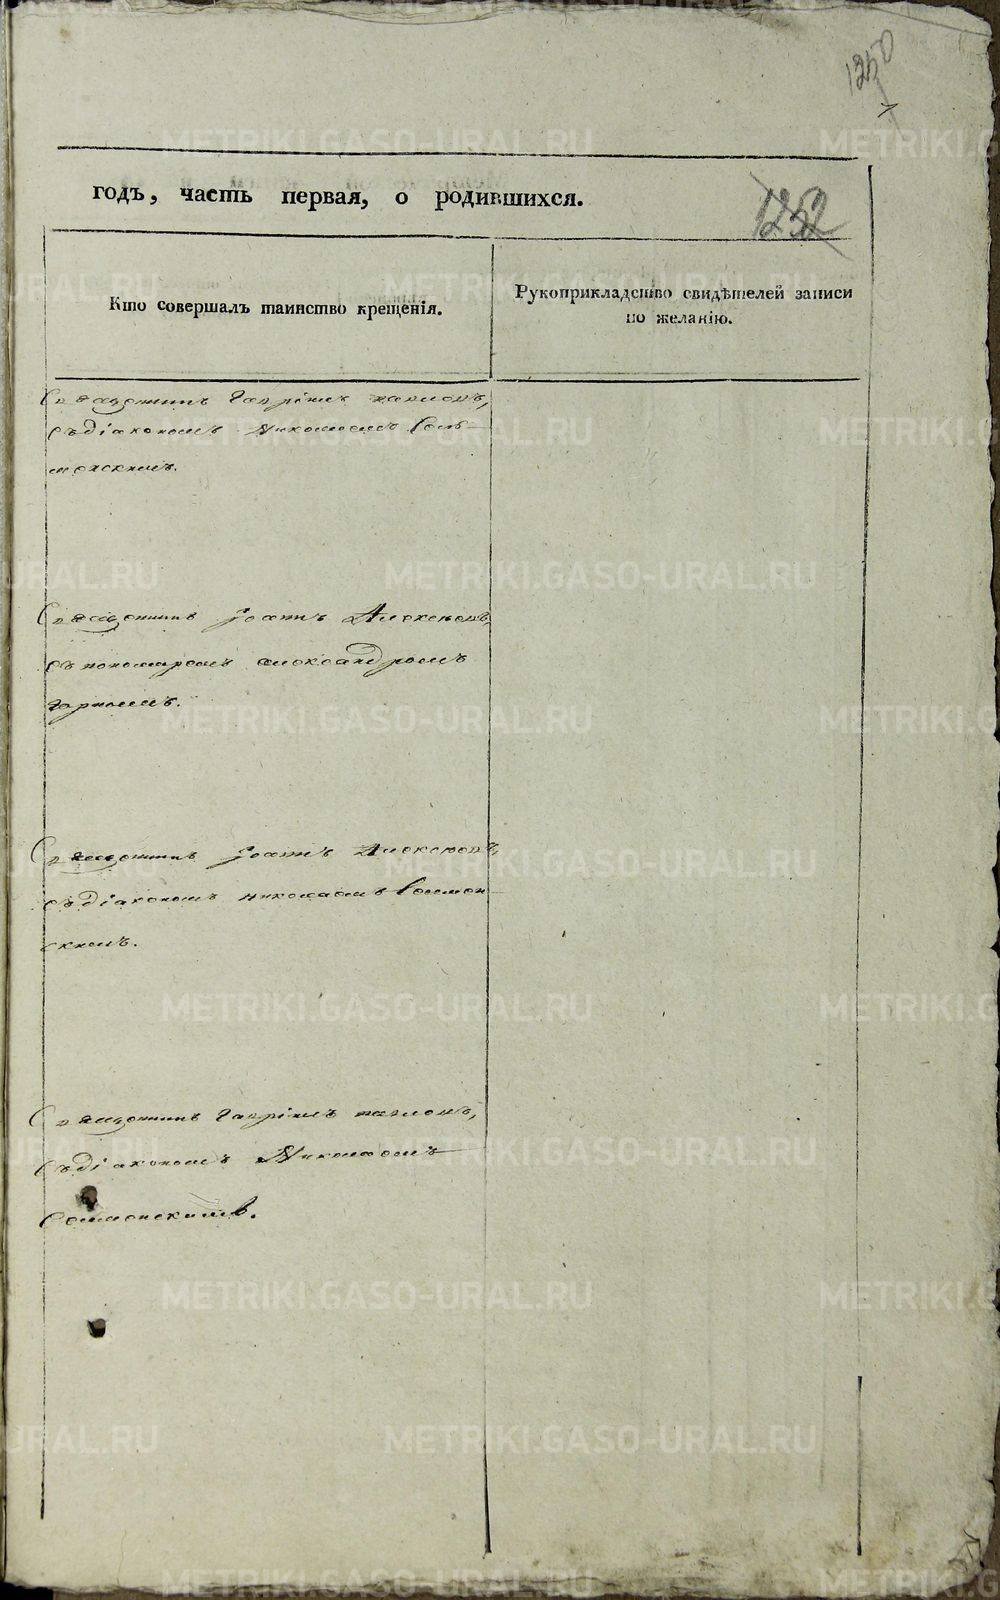 1250
годъ, часть первая, о родившихся.
1252
Кто совершалъ таинство крещенія.
Рукоприкладство свидѣтелей записи
по желанію.
Священникъ Гавріилъ Павловъ,
съ діакономъ Николаемъ
Священникъ Іоаннъ Алексѣевъ,
съ пономаремъ Александромъ
Священникъ Іоаннъ Алексѣевъ,
съ діакономъ Николаемъ
скимъ.
Священникъ Гавріилъ Павловъ,
съ діакономъ Николаемъ
METRIKI.GASO-URAL.RU